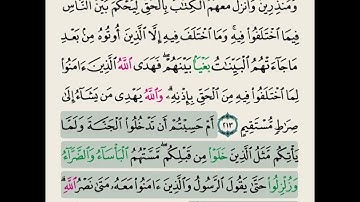 وَمُنذِرِينَ وَأَنزَلَ مَعَهُمُ ٱلْكِتَٰبَ بِٱلْحَقِّ لِيَحْكُمَ بَيْنَ ٱلنَّاسِ
فِيمَا ٱخْتَلَفُوا۟ فِيهِ ۚ وَمَا ٱخْتَلَفَ فِيهِ إِلَّا ٱلَّذِينَ أُوتُوهُ مِنۢ بَعْدِ
مَا جَآءَتْهُمُ ٱلْبَيِّنَٰتُ بَغْيًۢا بَيْنَهُمْ ۖ فَهَدَى ٱللَّهُ ٱلَّذِينَ ءَامَنُوا۟
لِمَا ٱخْتَلَفُوا۟ فِيهِ مِنَ ٱلْحَقِّ بِإِذْنِهِۦ ۗ وَٱللَّهُ يَهْدِى مَن يَشَآءُ إِلَىٰ
صِرَٰطٍ مُّسْتَقِيمٍ ٢١٣ أَمْ حَسِبْتُمْ أَن تَدْخُلُوا۟ ٱلْجَنَّةَ وَلَمَّا
يَأْتِكُم مَّثَلُ ٱلَّذِينَ خَلَوْا۟ مِن قَبْلِكُم ۖ مَّسَّتْهُمُ ٱلْبَأْسَآءُ وَٱلضَّرَّآءُ
وَزُلْزِلُوا۟ حَتَّىٰ يَقُولَ ٱلرَّسُولُ وَٱلَّذِينَ ءَامَنُوا۟ مَعَهُۥ مَتَىٰ نَصْرُ ٱللَّهِ ۗ